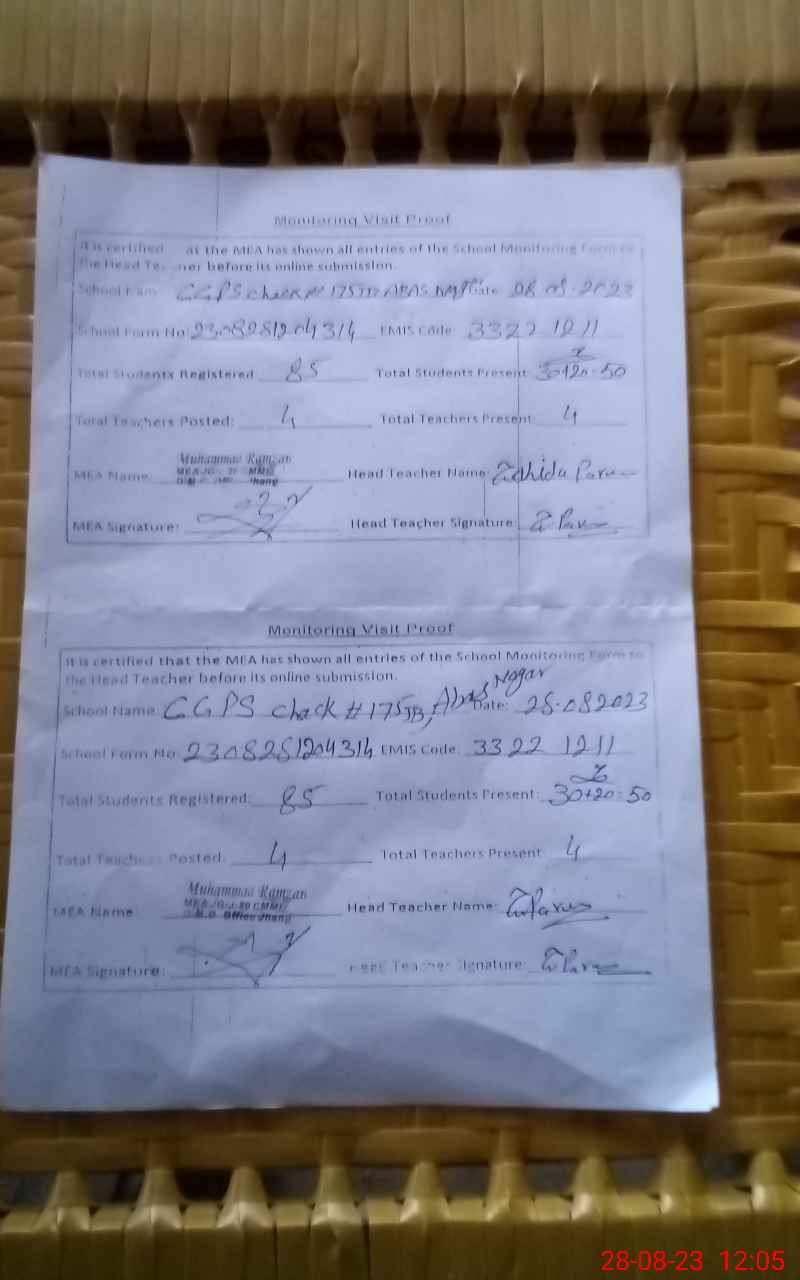 Monitoring Visit Proof
It is certified at the MEA has shown all entries of the School Monitoring Form to
the Head Te ner before its online submission.
School 175 Date 28 2023
School Form No: 2308281204314 EMIS Code: 3322 1211
Total Students Registered 85 Total Students Present: 30+20=50
Total Teachers Posted: 4 Total Teachers Present 4
Muhammad Ramzan
MEA Name: Head Teacher Name:
Jhang
MEA Signature: Head Teacher Signature:
Monitoring Visit Proof
It is certified that the MEA has shown all entries of the School Monitoring Form to
the Head Teacher before its online submission.
School Name: GGPS Chack # 175JB, Abas Nagar Date: 28.082023
School Form No 2308281204314 EMIS Code: 3322 1211
Total Students Registered: 85 Total Students Present: 30+20=50
Total Teachers Posted: 4 Total Teachers Present 4
Muhammad Ramzan
MEA Name Head Teacher Name:
Office Jhang
MEA Signature: Teacher Signature:
28-08-23 12:05